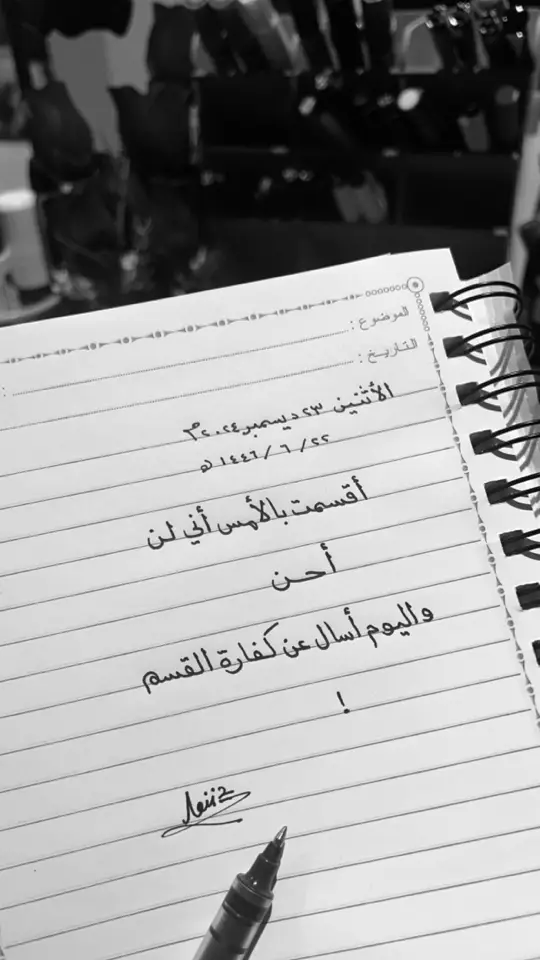 الموضوع :
التاريخ :
الأثنين ٢٣ ديسمبر ٢٠٢٤ م
٢٢ / ٦ / ١٤٤٦ هـ
أقسمت بالأمس أني لن
أحن
واليوم أسال عن كفارة القسم
!